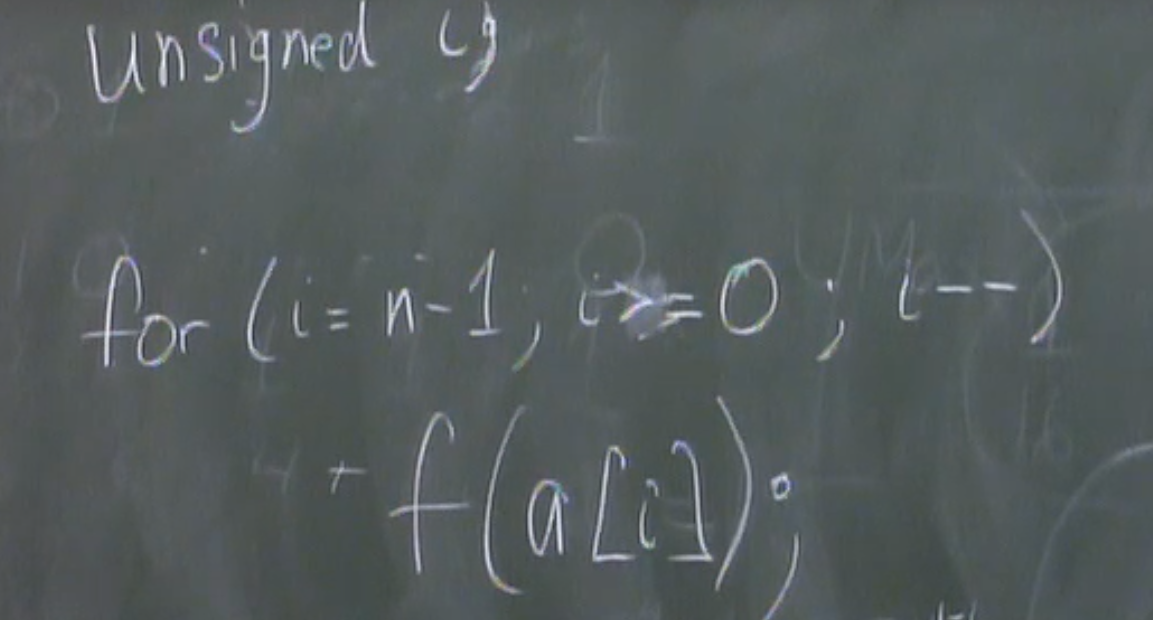 unsigned i;
for (i = n-1; i >= 0; i--)
f(a[i]);